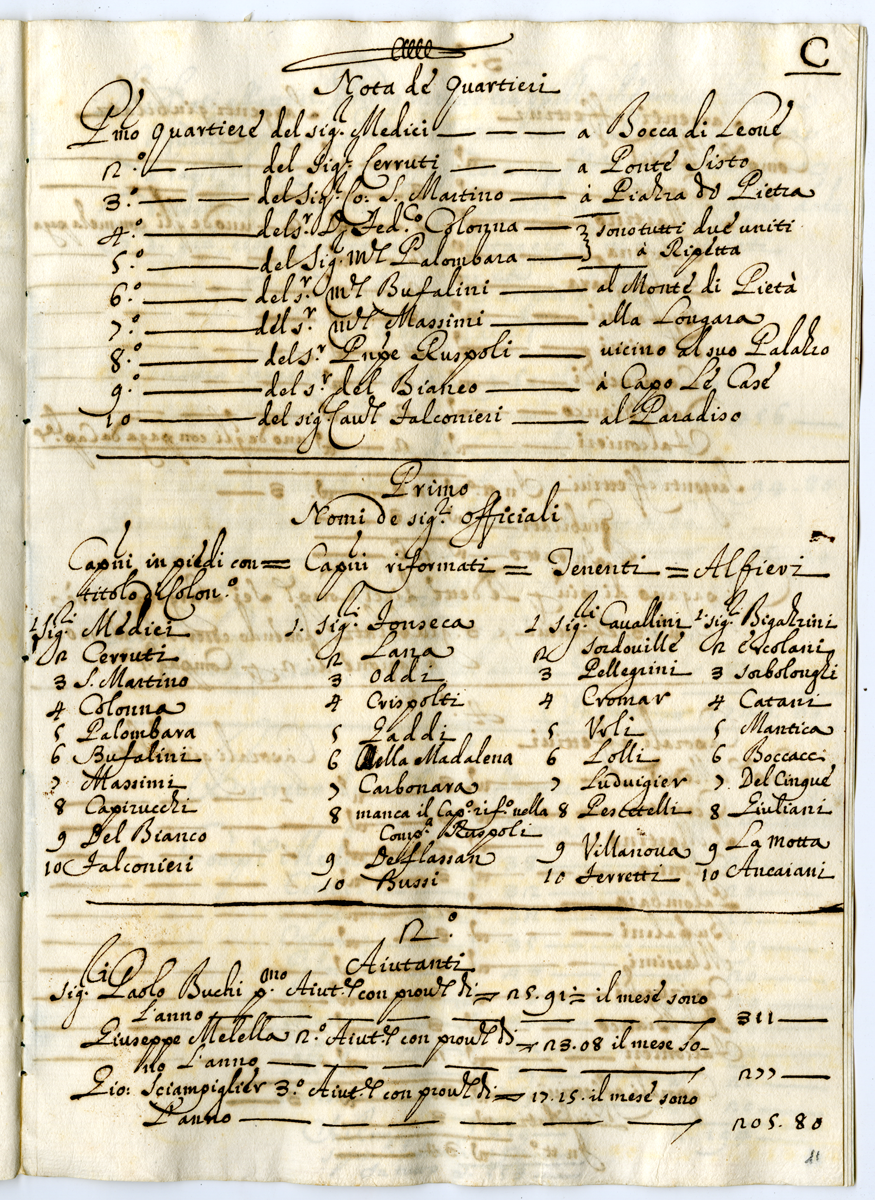 C
Nota de Quartieri
Pmo Quartiere del sigr. Medici — — — a Bocca di Leone
2.° — — del Sigr. Cerruti — — a Ponte Sisto
3.° — — del Sigr. Co: S. Martino — à Piazza di Pietra
4.° — del sr. D. Fed.co Colonna — } sono tutti due uniti
5.° — del Sig. Mse Palombara — } à Ripetta
6.° — del sr. Mse Bufalini — al Monte di Pietà
7.° — del sr. Mse Massimi — alla Longara
8.° — del sr. Pnpe Ruspoli — vicino al suo Palazzo
9.° — del sr. del Bianco — à Capo Le Case
10 — del sig. Cavre Falconieri — al Paradiso
Primo
Nomi de sigri. officiali
Capni. in piedi con = Capni riformati = Tenenti = Alfieri
titolo di Colon.°
1 Sigri. Medici 1. Sigri Fonseca 1 Sigri Cavallini 1. sigri Bigazzini
2 Cerruti 2 Lana 2 Sordouille 2 Ercolani
3 S. Martino 3 Oddi 3 Pellegrini 3 Sorbolonghi
4 Colonna 4 Crispolti 4 Cromar 4 Catani
5 Palombara 5 Gaddi 5 Voli 5 Mantica
6 Bufalini 6 Della Madalena 6 Lolli 6 Boccacci
7 Massimi 7 Carbonara 7 Luduigier 7. Del Cinque
8 Capizucchi 8 manca il Cap.° rif.° nella 8 Pescetelli 8 Giuliani
Comp.a Ruspoli
9 Del Bianco 9 Deflassan 9 Villanova 9 La Motta
10 Falconieri 10 Bussi 10 Ferretti 10 Ancaiani
2.°
Aiutanti
Sigri. Paolo Buchi p.mo Aiut.e con prove di = 25. 91 = il mese sono
L'anno — — — — — 311 —
Giuseppe Melella 2.° Aiut.e con prove di = 23. 08 il mese so-
no L'anno — — — — — 277 —
Gio: Sciampiglier 3.° Aiut.e con prove di = 17. 15. il mese sono
L'anno — — — — — 205. 80
11